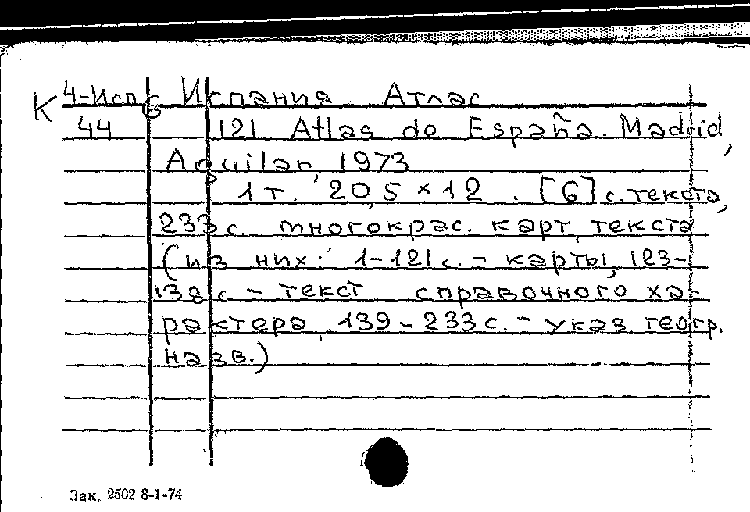 К 4-Исп Испания Атлас
44 121 Atlas de España. Madrid,
Aguilar, 1973
1 т. 20,5 × 12. [6] с. текста,
233 с. многокрас. карт, текста
(из них: 1-121 с. - карты, 123-
138 с - текст справочного ха-
рактера, 139-233 с. - указ. геогр.
назв.)
Зак. 2502 8-1-74